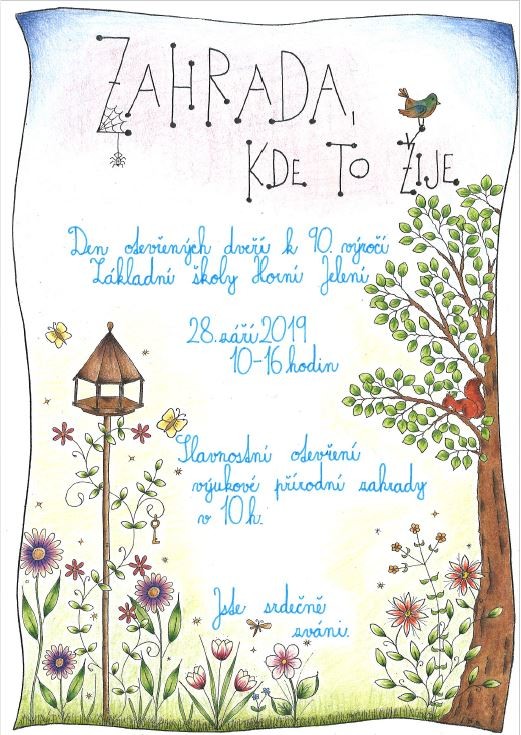 ZAHRADA,
KDE TO ŽIJE
Den otevřených dveří k 90. výročí
Základní školy Horní Jelení
28. září 2019
10-16 hodin
Slavnostní otevření
výukové přírodní zahrady
v 10 h.
Jste srdečně
zváni.